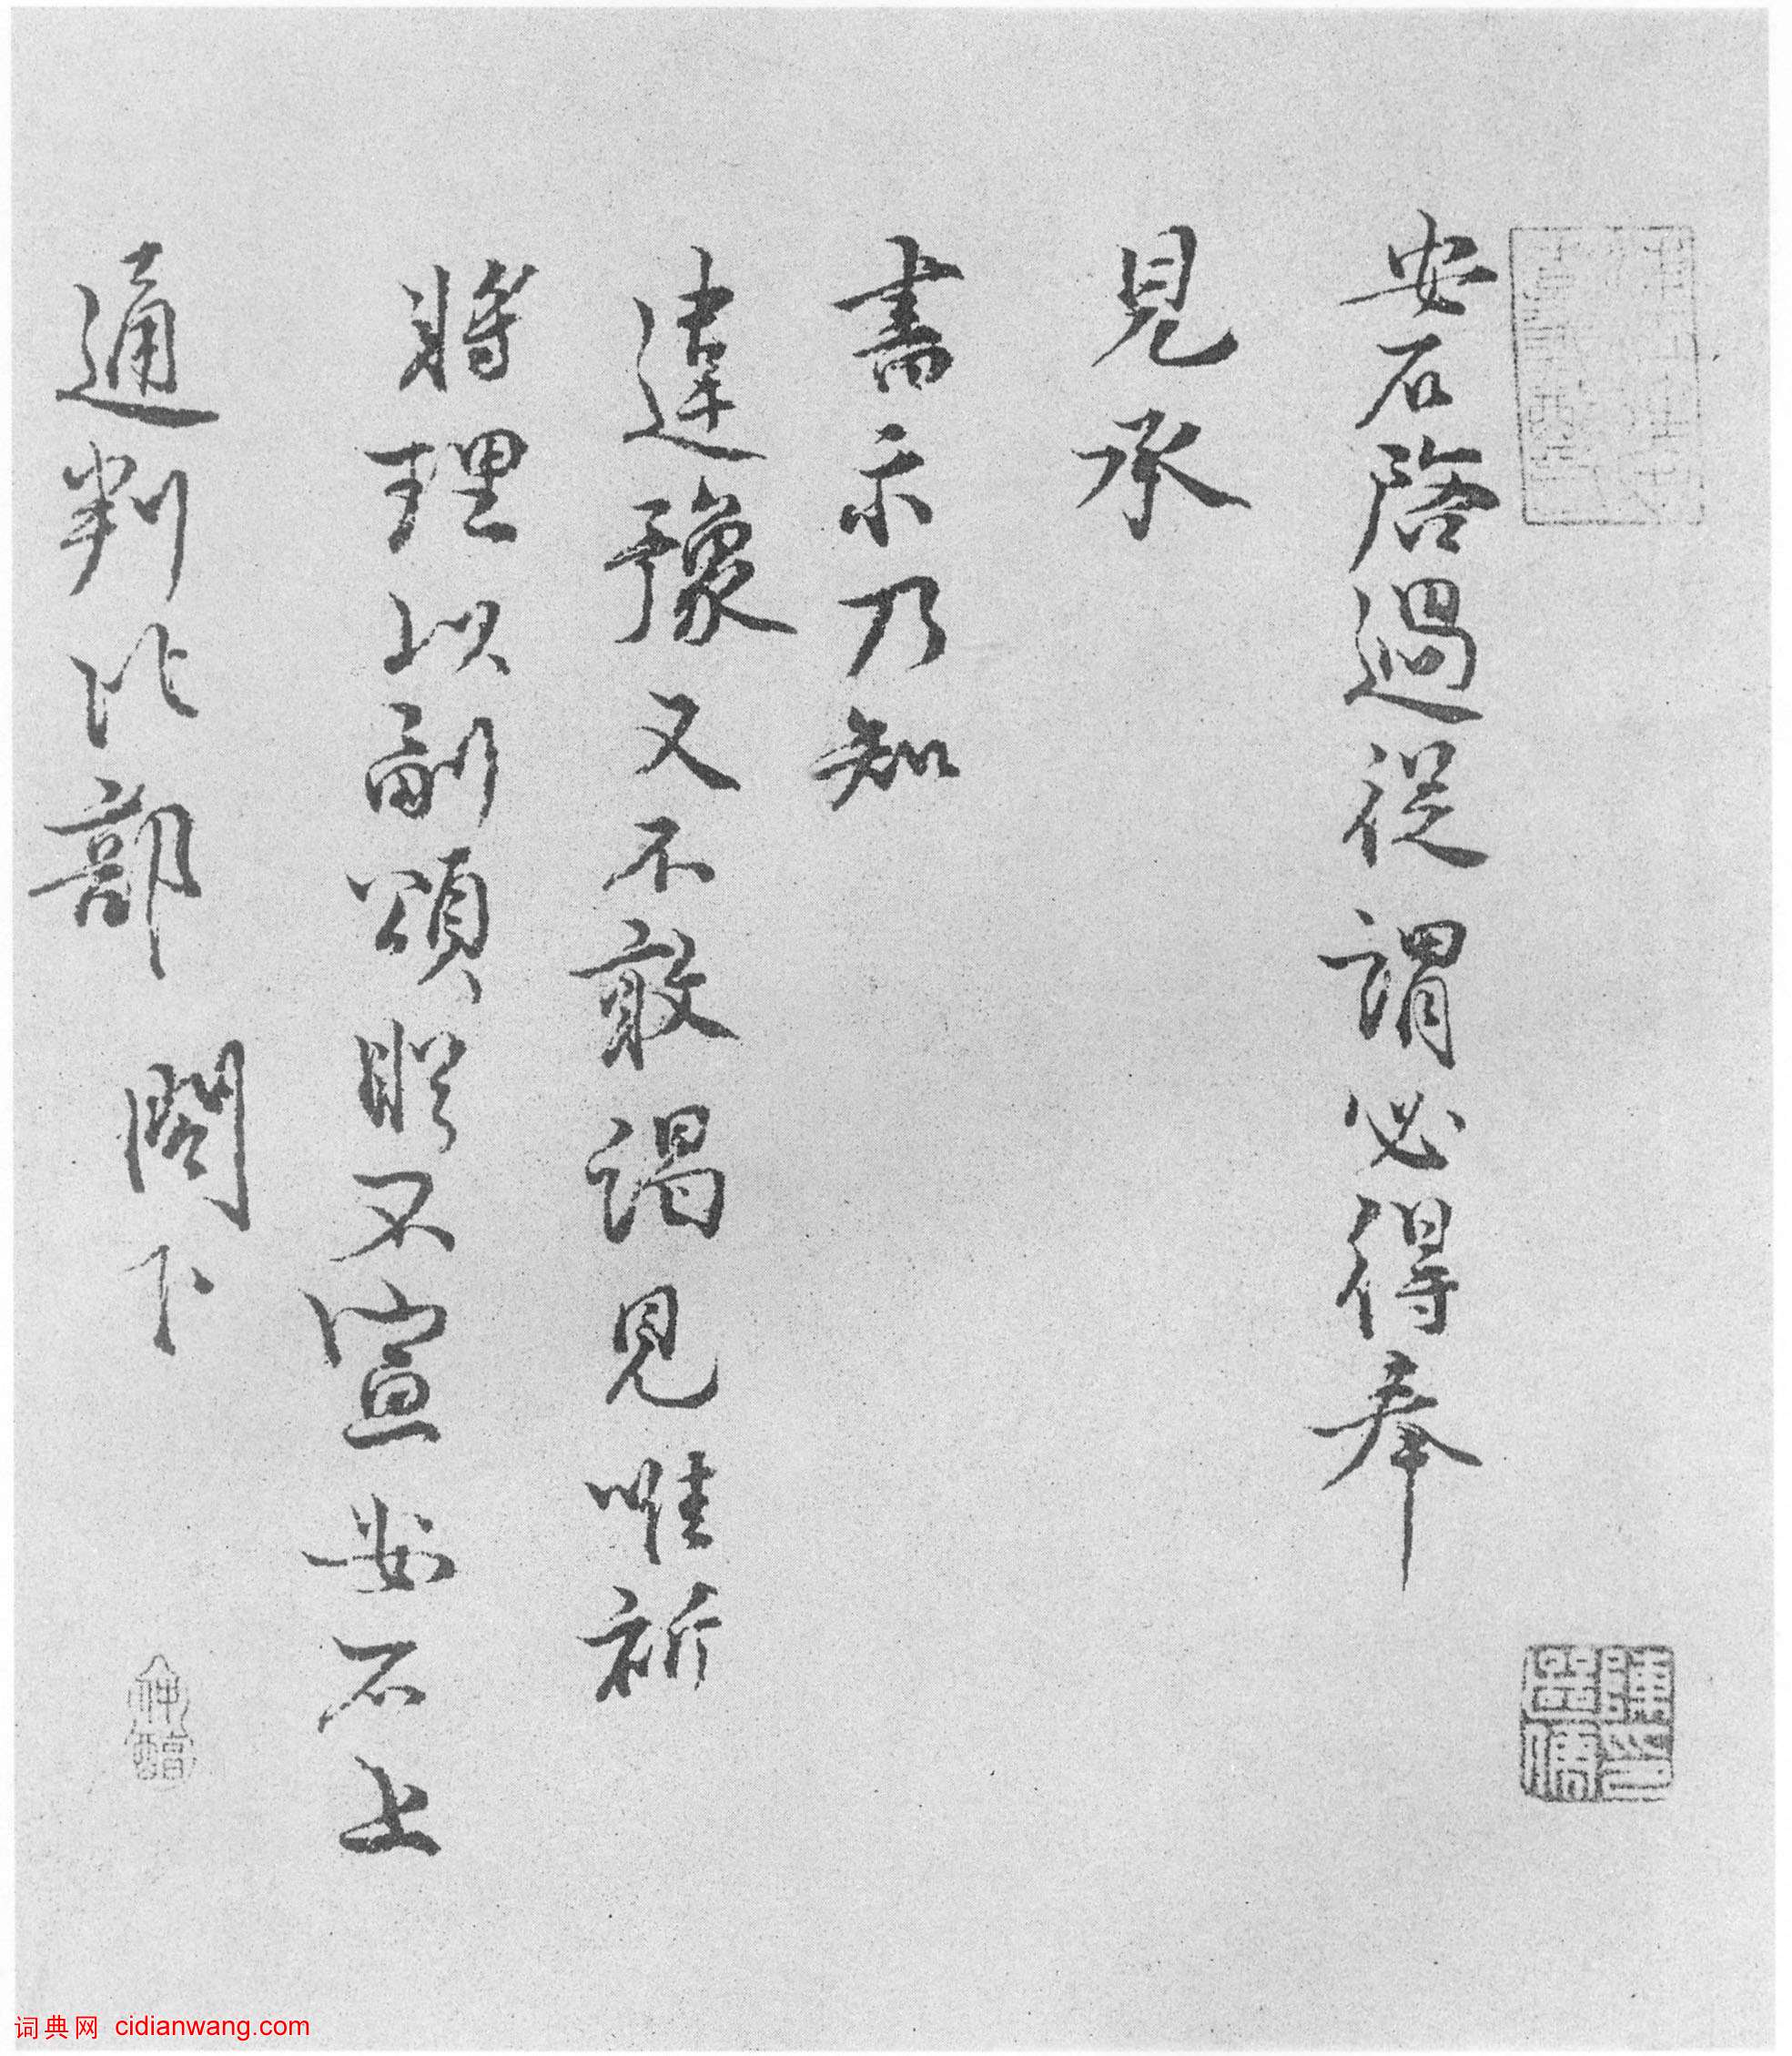 安石啓過從謂必得奉
見承
書示乃知
違豫又不敢謁見唯祈
將理以副頌睠不宣安石上
通判比部 閤下
词典网 cidianwang.com